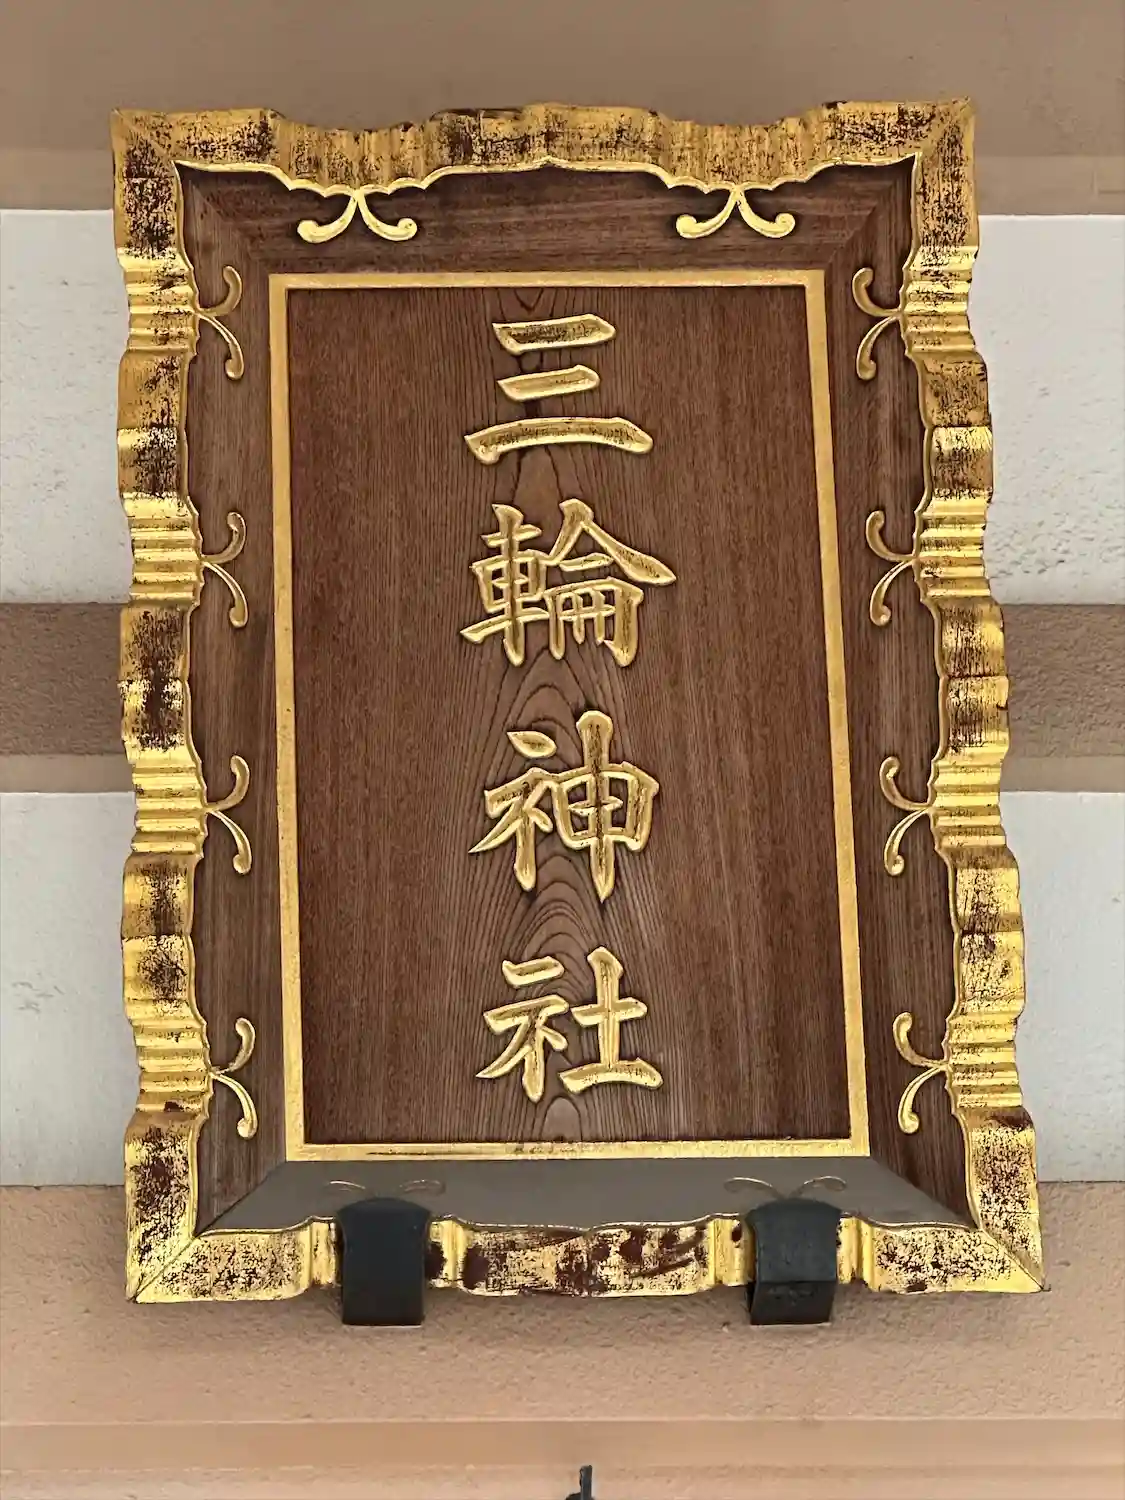 三輪神社